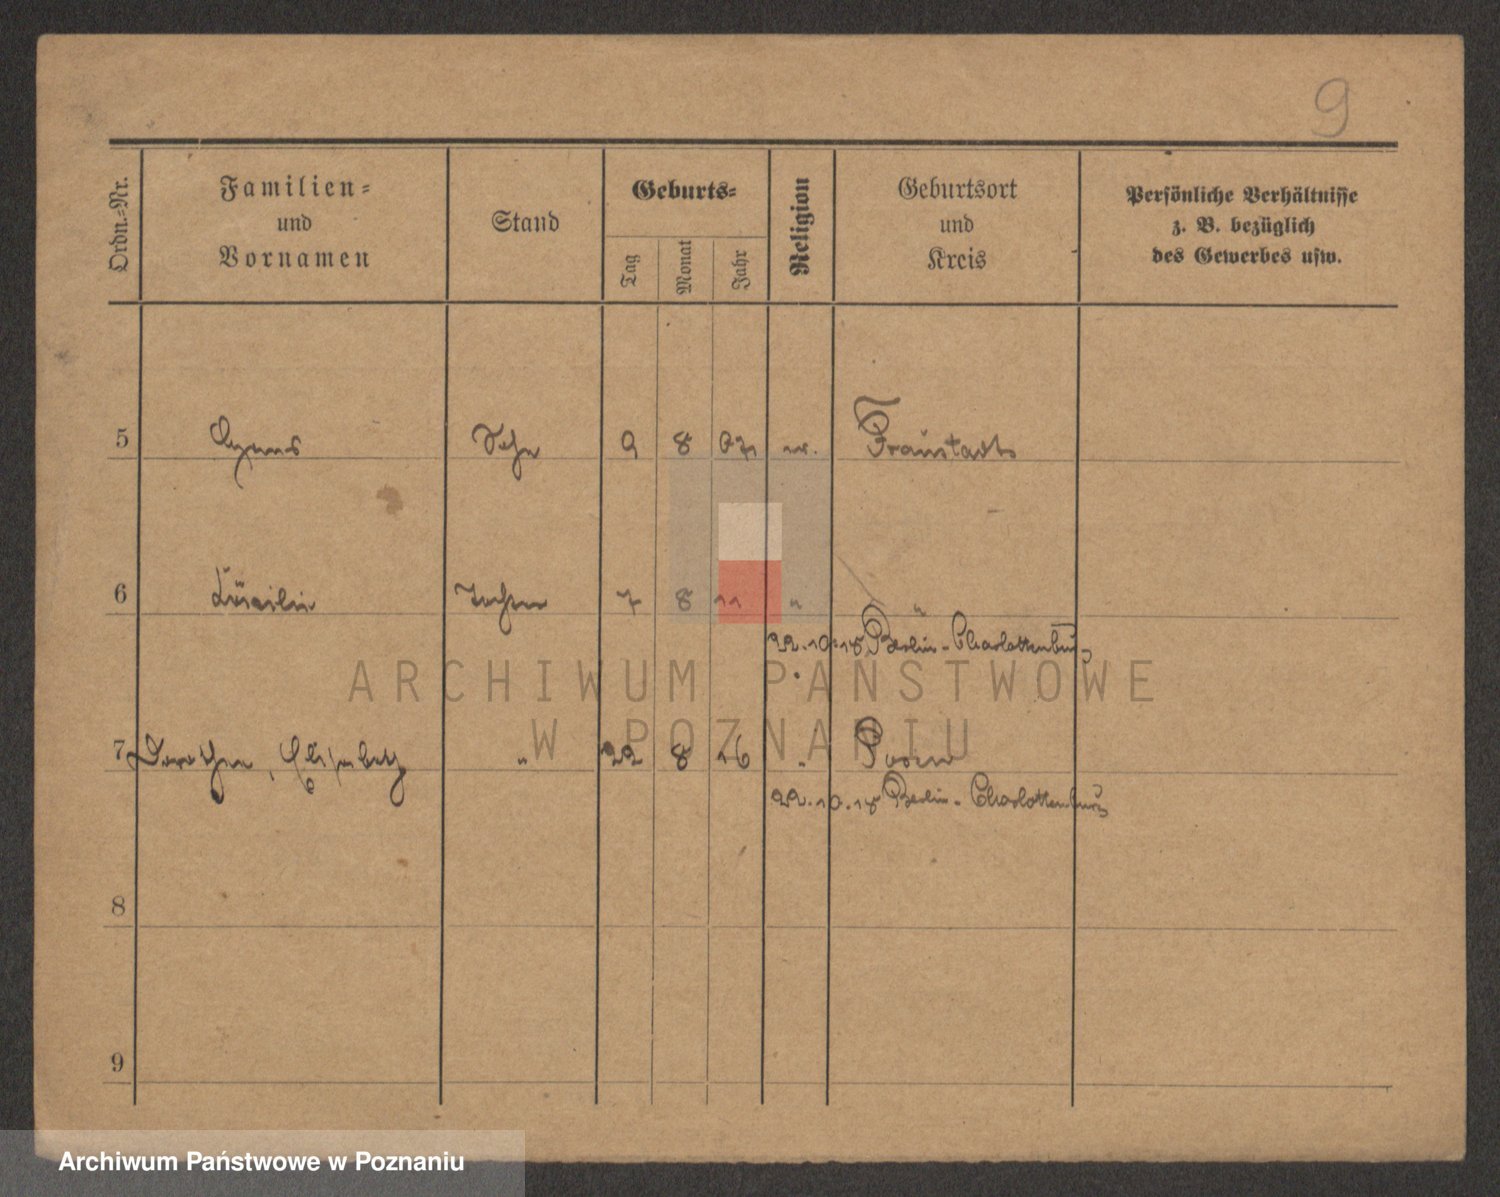 9
Ordn.-Nr.
Familien-
und
Vornamen
Stand
Geburts-
Tag
Monat
Jahr
Religion
Geburtsort
und
Kreis
Persönliche Verhältnisse
z. B. bezüglich
des Gewerbes usw.
5 Sohn 9 8 Fraustadt
6 7 8 11 " "
22.10.18 Berlin-Charlottenburg
ARCHIWUM PAŃSTWOWE
W POZNANIU
7 Dorothea, Elisabeth " 22 8 16 " Posen
22.10.18 Berlin-Charlottenburg
8
9
Archiwum Państwowe w Poznaniu